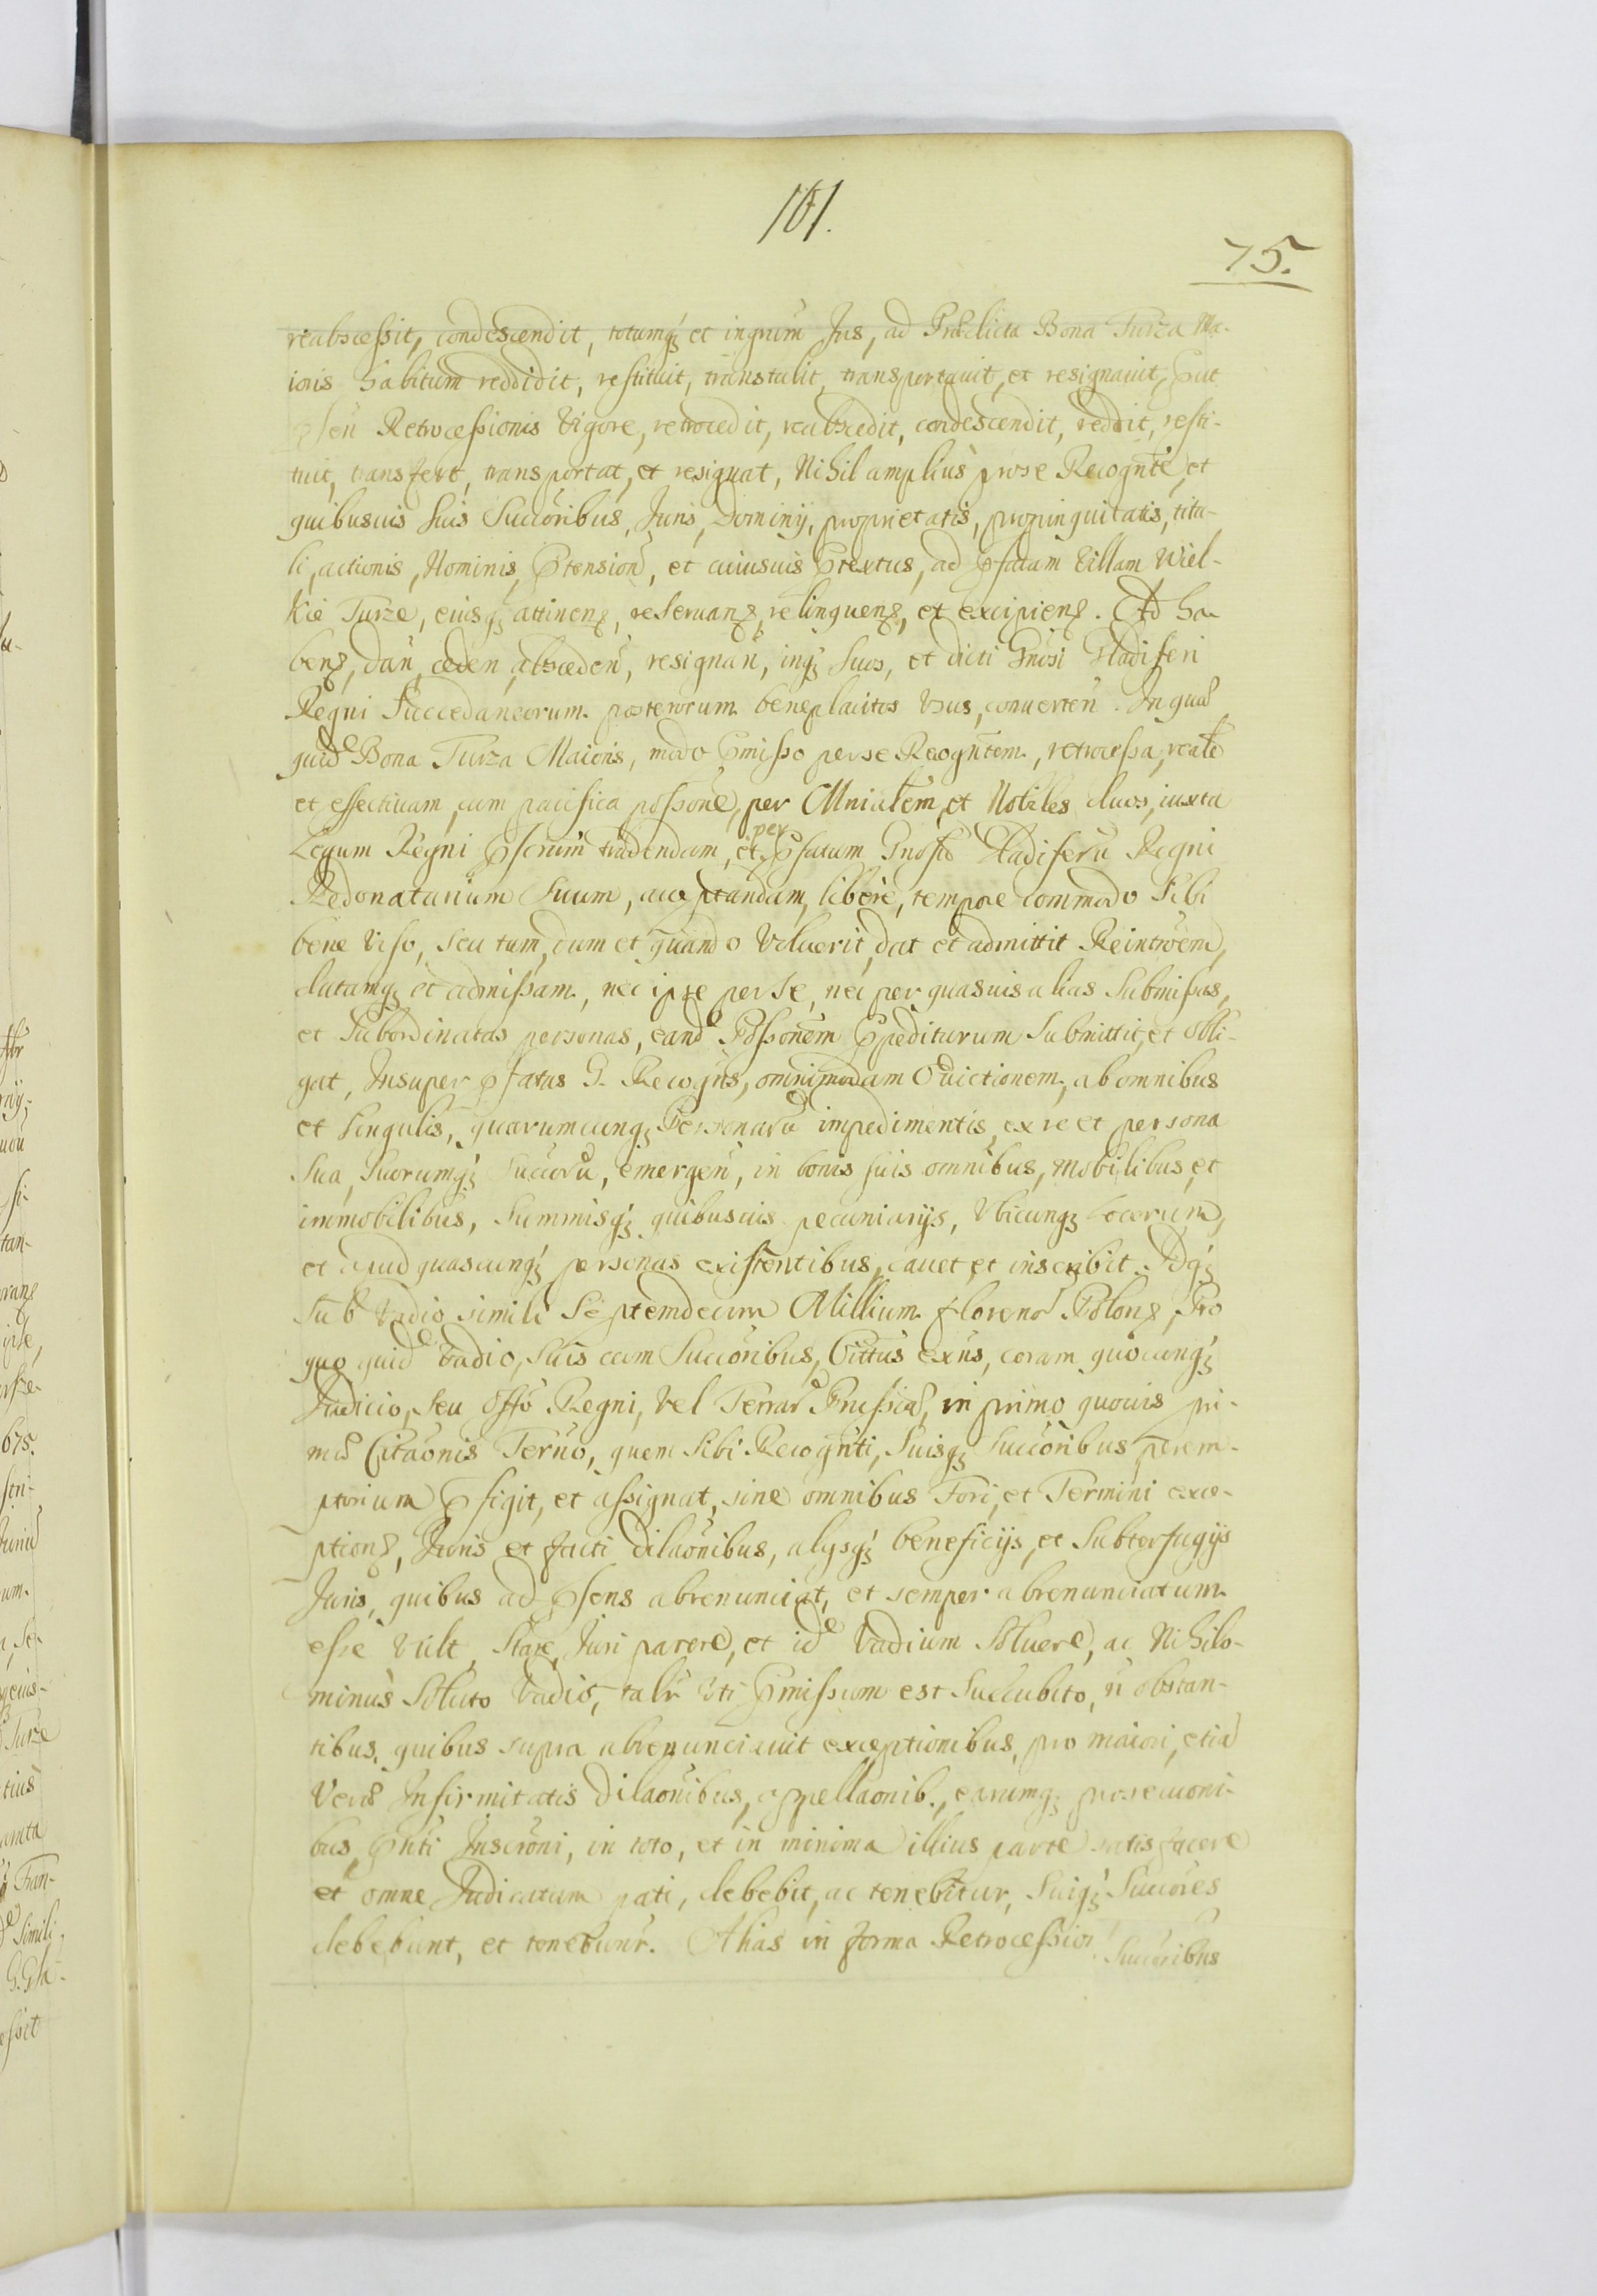 101.
75.
reabscessit, condescendit, totumq; et ingrum Jus, ad Prædicta Bona Turza Ma-
ioris habitum reddidit, restituit, transtulit, transportauit, et resignauit, Put
psen Retrocessionis Vigore, retrocedit, reabscedit, condescendit, reddit, resti-
tuit, transfert, transportat, et resignat, Nihil amplius prose Recognte, et
quibusuis suis Succoribus, Juris, Dominij, proprietatis, propinquitatis, titu-
li, actionis, Nominis, Ptension, et cuiusuis Ptextus, ad Pfatam Villam Wiel-
kie Turze, eiusq; attinen, reseruan, relinquen, et excipien. Ad ha-
ben, dan, ceden, absceden, resignan, inq; suos, et dicti Gnosi Gladiferi
Regni Succedaneorum posterorum beneplacitos Vsus, conuerten. In quæ
quid Bona Turza Maioris, modo Pmisso per se Recogntem, retrocessa, reale
et effectiuam, cum pacifica possone, per Mnialem, et Nobiles duos, iuxta
Legum Regni Pscrum tradendam, et per Pfatum Gnosu Gladiferu Regni
Redonatarium Suum, acceptandam, libere, tempore commodo Sibi
bene Viso, seu tum, dum et quando Voluerit, dat et admittit Reintroem,
datamq; et admissam, nec ipse per se, nec per quasuis alias Submissas,
et Subordinatas personas, eand Possonem Ppediturum Submittit, et obli-
gat, Insuper Pfatus G. Recogns, omnimodam Euictionem, ab omnibus
et Singulis, quarumcunq; Personaru impedimentis, ex re et persona
sua, Suorumq; Succoru, emergen, in bonis suis omnibus, mobilibus, et
immobilibus, Summisq; quibusuis pecuniarijs, Vbicunq; locorum,
et apud quascunq; personas existentibus, cauet et inscribit. Idq;
sub Vadio simili Septemdecim Millium floreno Polon, Pro
quo quid Vadio, suis cum Succoribus, Cittus exns, coram quocunq;
Judicio, seu Offo Regni, Vel Terrar Prussiæ, in primo quouis pri-
mæ Citaonis Terno, quem Sibi Recognti, Suisq; Succoribus perem-
ptorium Pfigit, et assignat, sine omnibus Fori, et Termini exce-
ption, Juris et facti dilaonibus, alijsq; beneficijs, et Subterfugijs
Juris, quibus ad Psens abrenunciat, et semper abrenunciatum
esse vult, Stare, Juri parere, et id Vadium Soluere, ac Nihilo-
minus Soluto Vadio, talr Vti Pmissum est Succubito, n obstan-
tibus, quibus supra abrenunciauit exceptionibus, pro maiori, etia
Veræ Infirmitatis Dilaonibus, appellaonib., earumq; prosecuoni-
bus, Pnti Inscroni, in toto, et in minima illius parte satisfacere
et omne Judicatum pati, debebit, ac tenebitur, Suiq; Succores
debebunt, et tenebuntr. Alias in forma Retrocession
Succoribus